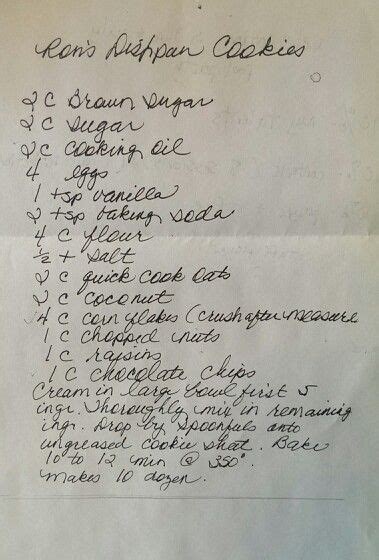 Ron's Dishpan Cookies
2 C Brown Sugar
2 C Sugar
2 C Cooking Oil
4 eggs
1 tsp vanilla
2 tsp baking soda
4 C flour
½ t salt
2 C quick cook oats
2 C coconut
4 C corn flakes (crush after measure
1 C chopped nuts
1 C raisins
1 C chocolate chips
Cream in large bowl first 5
ingr. Thoroughly mix in remaining
ingr. Drop by spoonfuls onto
ungreased cookie sheat. Bake
10 to 12 min @ 350°.
Makes 10 dozen.